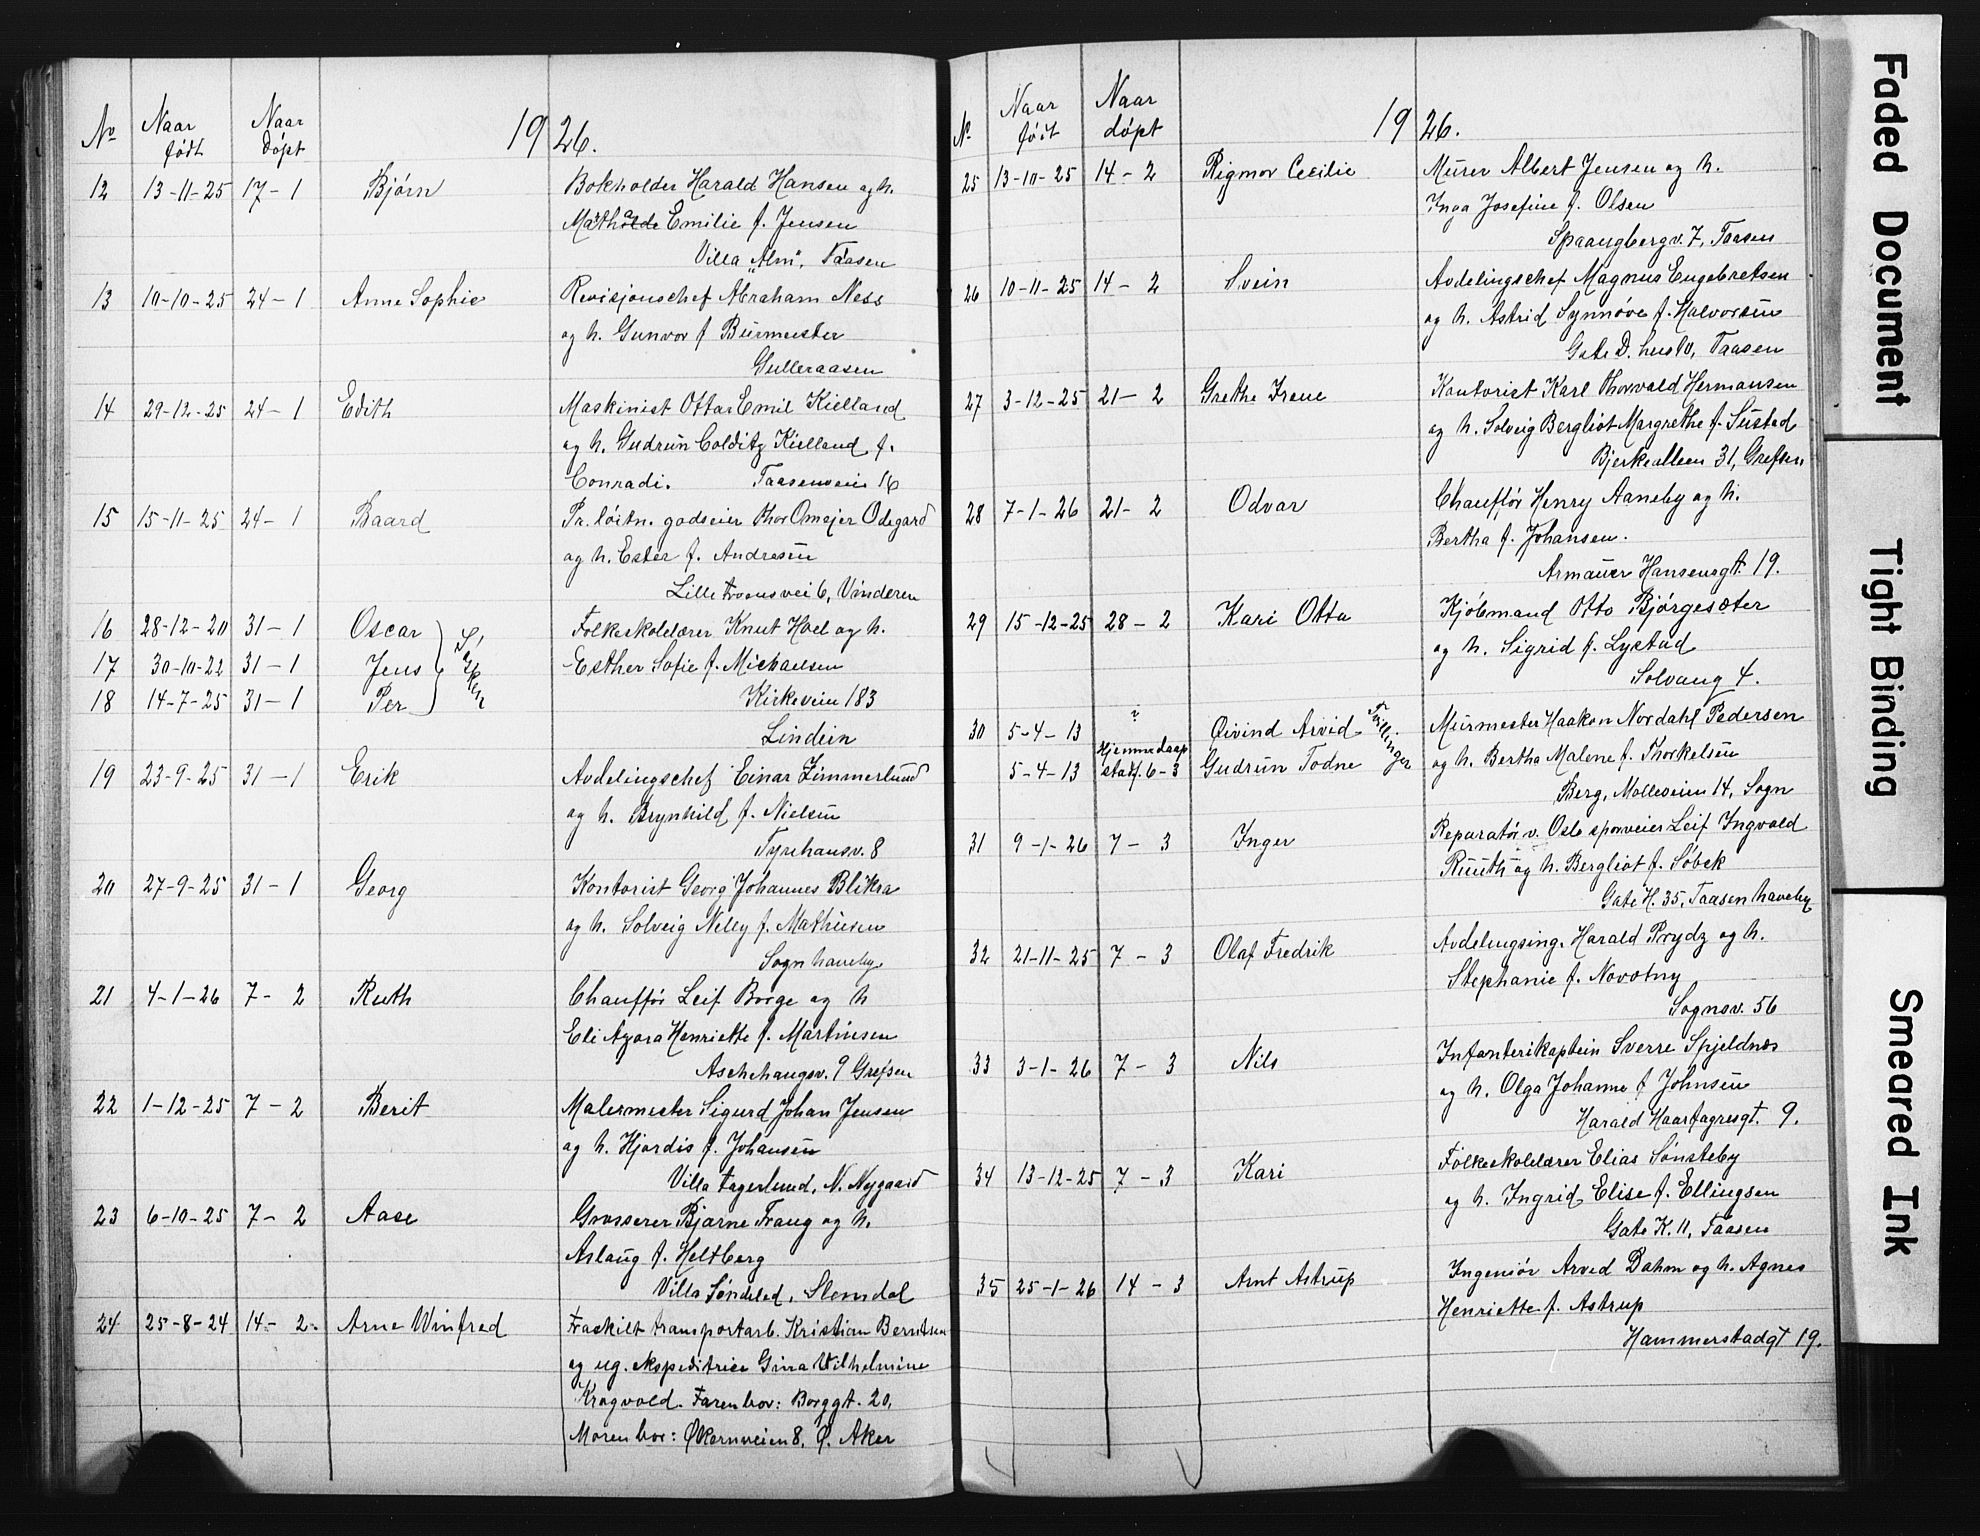 No Naar født Naar døpt 1926.
12 13-11-25 17-1 Bjørn Bokholder Harald Hansen og h.
Mathilde Emilie f. Jensen
Villa „Alm", Taasen
13 10-10-25 24-1 Anne Sophie Revisjonschef Abraham Ness
og h. Gunvor f Burmeister
Gulleraasen
14 29-12-25 24-1 Edith Maskinist Ottar Emil Kielland
og h. Gudrun Colditz Kielland f.
Conradi. Taasenveien 16
15 15-11-25 24-1 Baard Pr. løitn. godseier Thor Omejer Odegard
og h. Ester f. Andresen
Lille Froensvei 6, Vinderen
16 28-12-20 31-1 Oscar Folkeskolelærer Knut Hoel og h.
17 30-10-22 31-1 Jens Esther Sofie f. Michaelsen
18 14-7-25 31-1 Per Kirkeveien 183
Lindein
19 23-9-25 31-1 Erik Avdelingschef Einar Zimmerlund
og h. Brynhild f. Nielsen
Tyrihansv. 8
20 27-9-25 31-1 Georg Kontorist Georg Johannes Blikra
og h. Solveig Nelly f. Mathiesen
Sogn haveby
21 4-1-26 7-2 Ruth Chauffør Leif Borge og h
Eli Agora Henriette f. Martinsen
Aschehaugsv. 9 Grefsen
22 1-12-25 7-2 Berit Malermester Sigurd Johan Jensen
og h. Hjørdis f. Johansen
Villa Fagerlund, N. Nygaard
23 6-10-25 7-2 Aase Grosserer Bjarne Traug og h.
Aslaug f. Heltberg
Villa Søndeled, Slemdal
24 25-8-24 14-2. Arne Winfred Fraskilt transportarb. Kristian Berntsen
og ug. ekspeditrice Gina Wilhelmine
Kragvold. Faren bor: Borggt. 20,
Moren bor: Økernveien 8, Ø. Aker
N. Naar født Naar døpt 1926.
25 13-10-25 14-2 Rigmor Cecilie Murer Albert Jensen og h.
Inga Josefine f. Olsen
Spaangbergv. 7, Taasen
26 10-11-25 14-2 Svein Avdelingschef Magnus Engebretsen
og h. Astrid Synnøve f. Halvorsen
Gate D. hus 10, Taasen
27 3-12-25 21-2 Grethe Irene Kontorist Karl Thorvald Hermansen
og h. Solveig Bergliot Margrethe f. Sustad
Bjerkealleen 31, Grefsen
28 7-1-26 21-2 Odvar Chauffør Henry Aaneby og h.
Bertha f. Johansen.
Armauer Hansensgt. 19.
29 15-12-25 28-2 Kari Otta Kjøbmand Otto Bjørgesæter
og h. Sigrid f. Lystad
Solvang 4.
30 5-4-13 Øivind Arvid Tvillinger Murmester Haakon Nordahl Pedersen
5-4-13 Hjemmedaap stadf. 6-3 Gudrun Todne og h. Bertha Malene f. Thorkelsen
Berg, Molleveien 14, Sogn
31 9-1-26 7-3 Inger Reparatør v. Oslo sporveier Leif Ingvald
Ruuth og h. Bergliot f. Søbek
Gate H. 35, Taasen haveby
32 21-11-25 7-3 Olaf Fredrik Avdelingsing. Harald Prydz og h.
Stephanie f. Novotny
Sognsv. 56
33 3-1-26 7-3 Nils Infanterikaptein Sverre Spjeldnæs
og h. Olga Johanne f Johnsen
Harald Haarfagresgt. 9.
34 13-12-25 7-3 Kari Folkeskolelærer Elias Sønsteby
og h. Ingrid Elise f. Ellingsen
Gate K. 11, Taasen
35 25-1-26 14-3 Arnt Astrup Ingeniør Arvid Dahm og h. Agnes
Henriette f. Astrup
Hammerstadgt 19.
Faded Document
Tight Binding
Smeared Ink